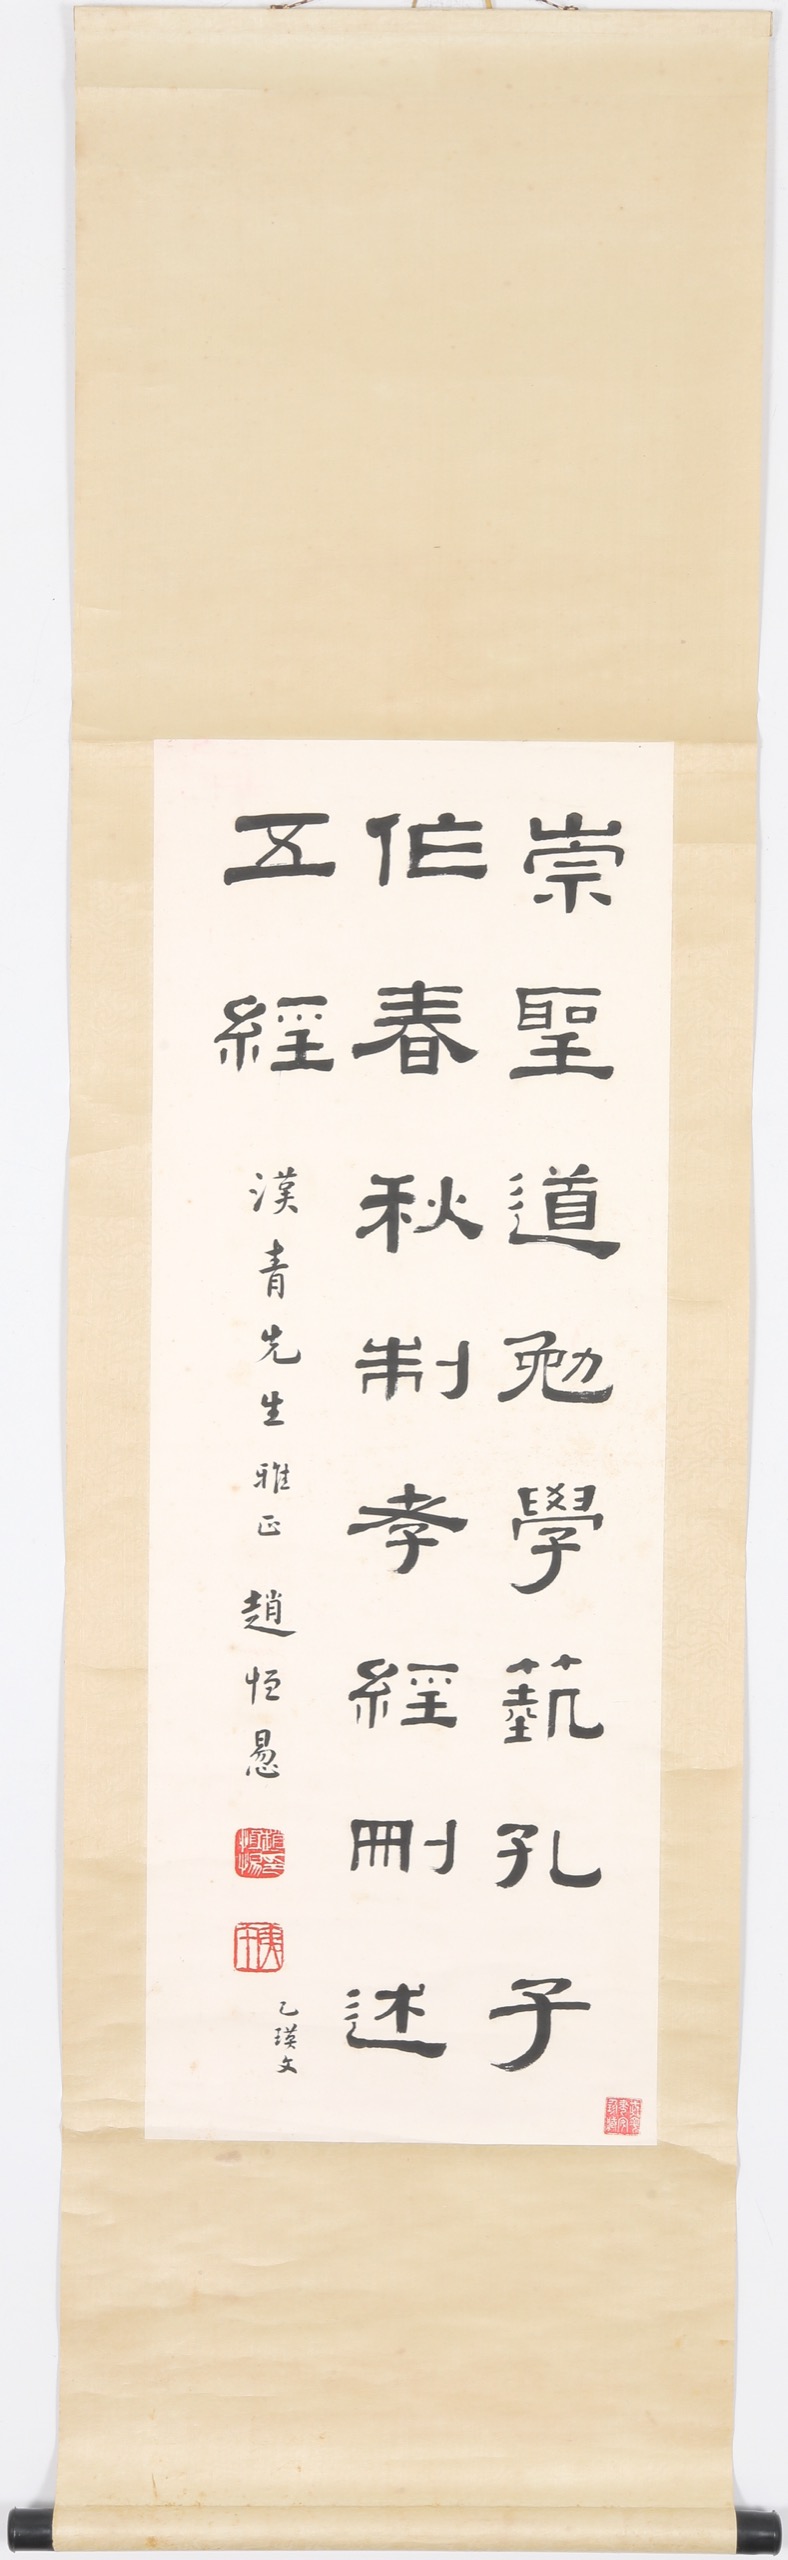 崇聖道勉學藝孔子
作春秋制孝經刪述
五經
漢青先生雅正 趙恒惖
乙瑛文